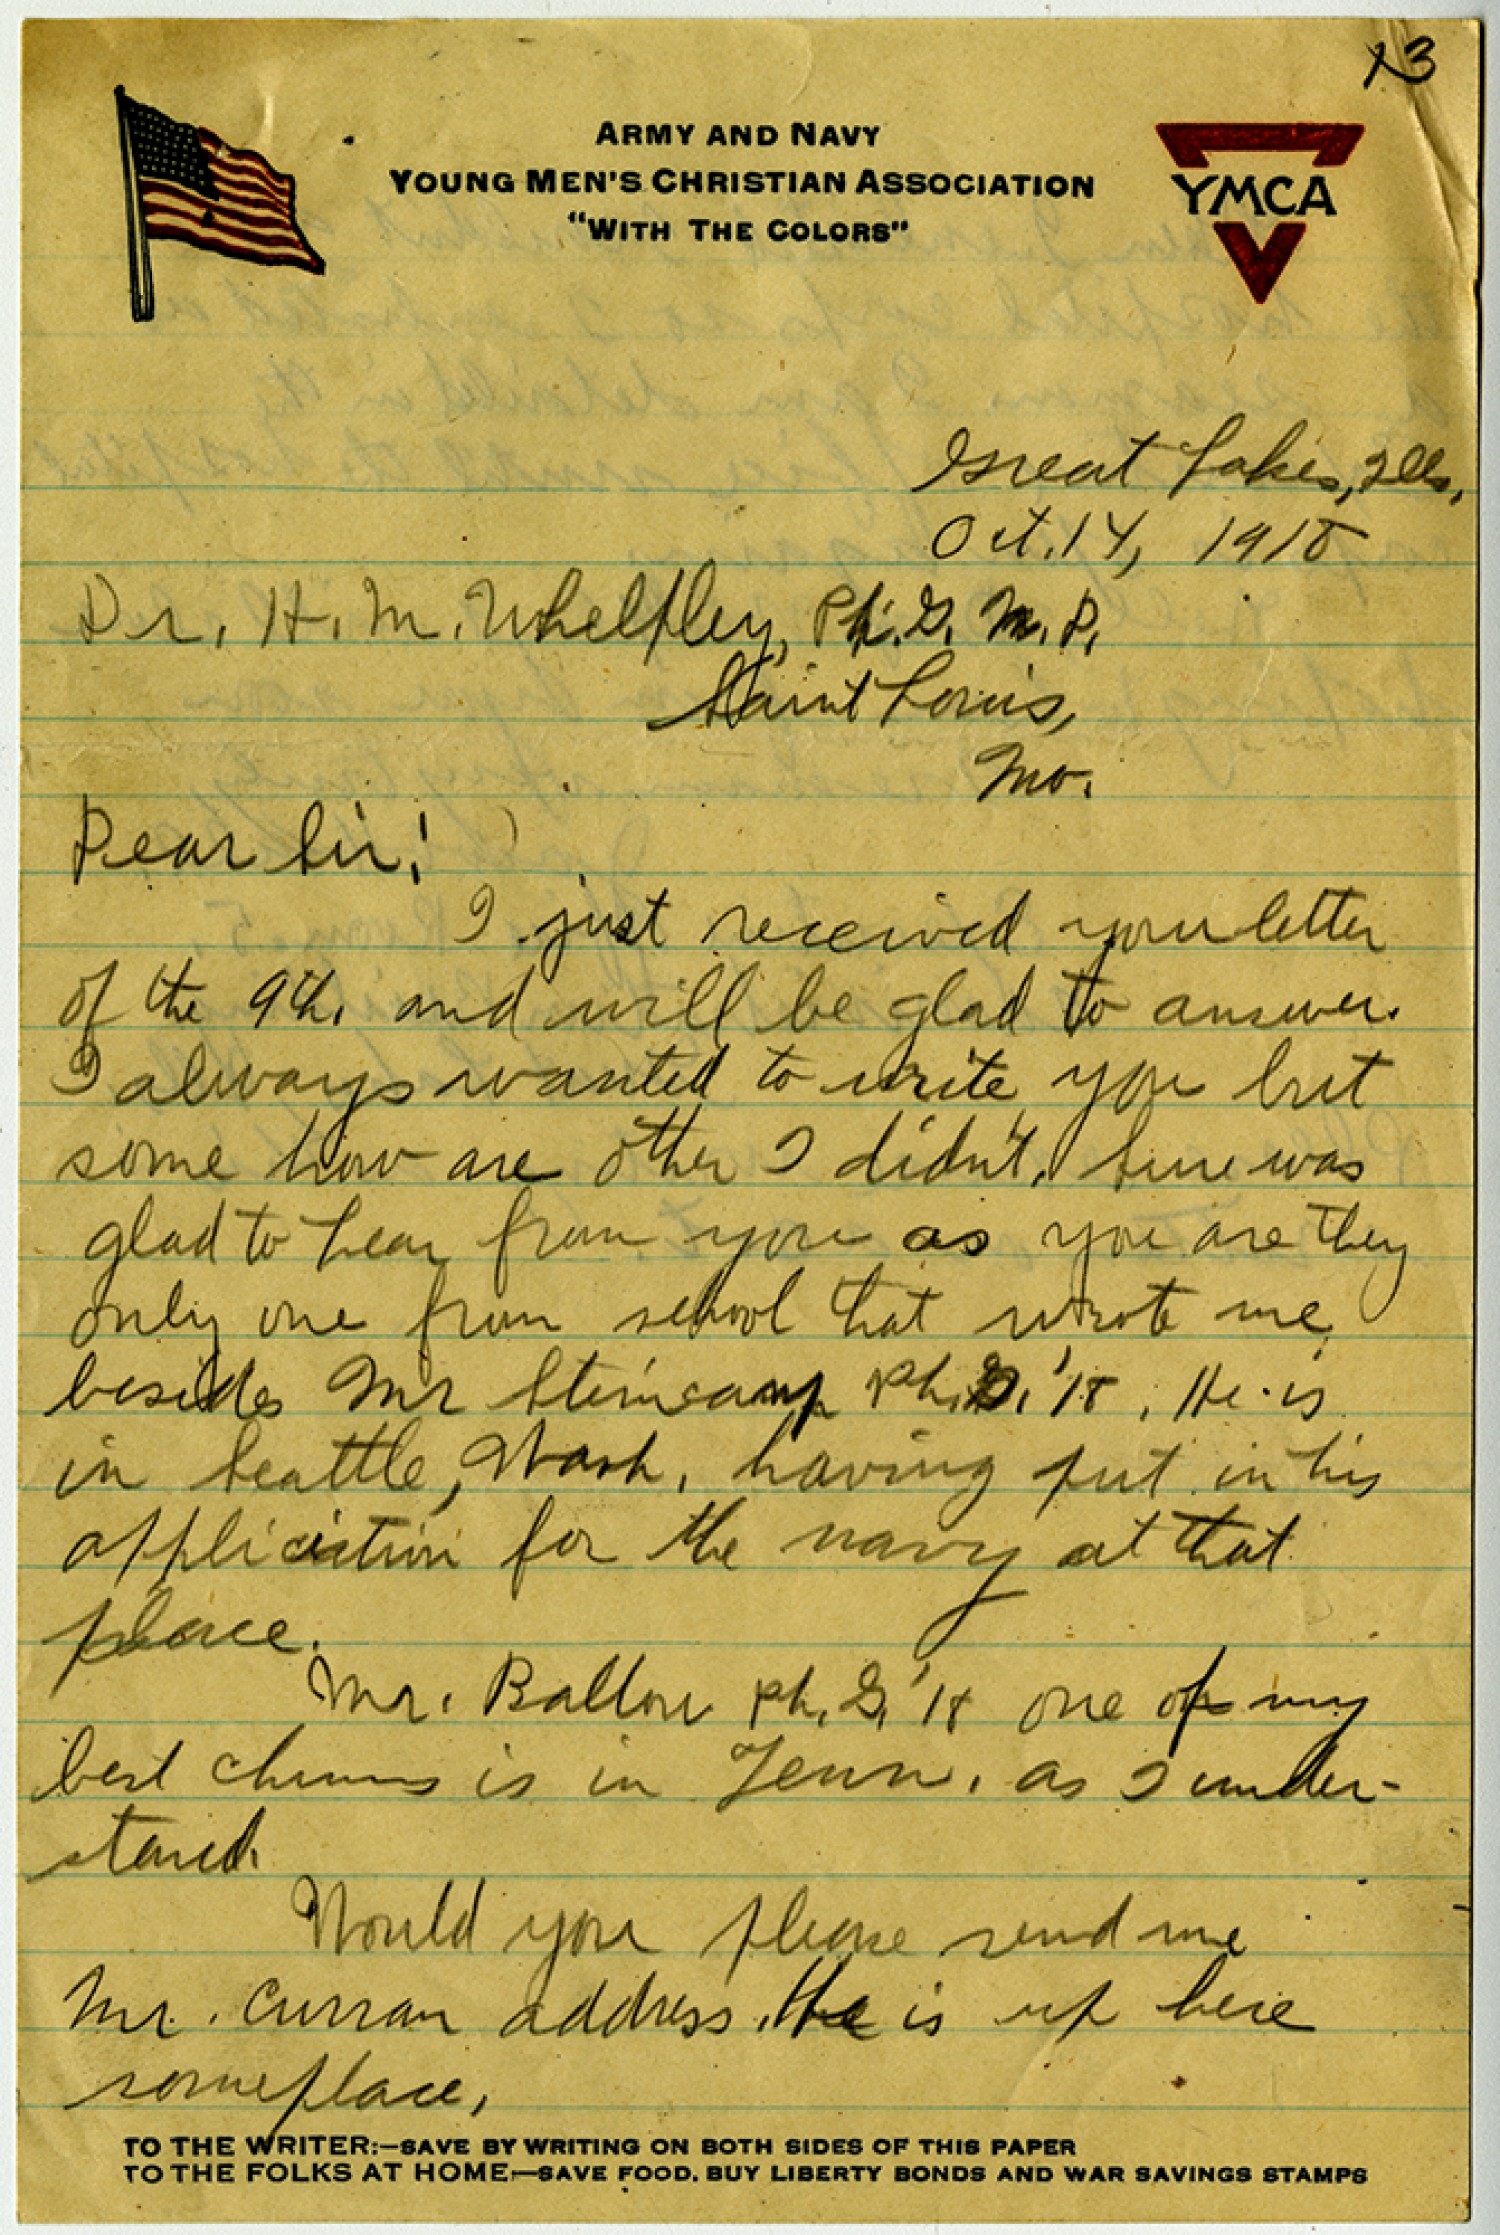 13
ARMY AND NAVY
YOUNG MEN'S CHRISTIAN ASSOCIATION
"WITH THE COLORS"
YMCA
Great Lakes, Ills,
Oct. 14, 1918
Dr. H. M. Whelpley, Ph. G. M. D.
Saint Louis,
Mo.
Dear Sir!
I just received your letter
of the 9th. and will be glad to answer.
I always wanted to write you but
some how are other I didn't. Sure was
glad to hear from you as you are they
only one from school that wrote me
besides Mr Steincamp Ph. G. '18. He is
in Seattle, Wash. having put in his
application for the navy at that
place.
Mr. Ballou Ph. G. '18 one of my
best chums is in Tenn. as I under-
stand.
Would you please send me
Mr. Curran address. He is up here
someplace.
TO THE WRITER:—SAVE BY WRITING ON BOTH SIDES OF THIS PAPER
TO THE FOLKS AT HOME:—SAVE FOOD, BUY LIBERTY BONDS AND WAR SAVINGS STAMPS